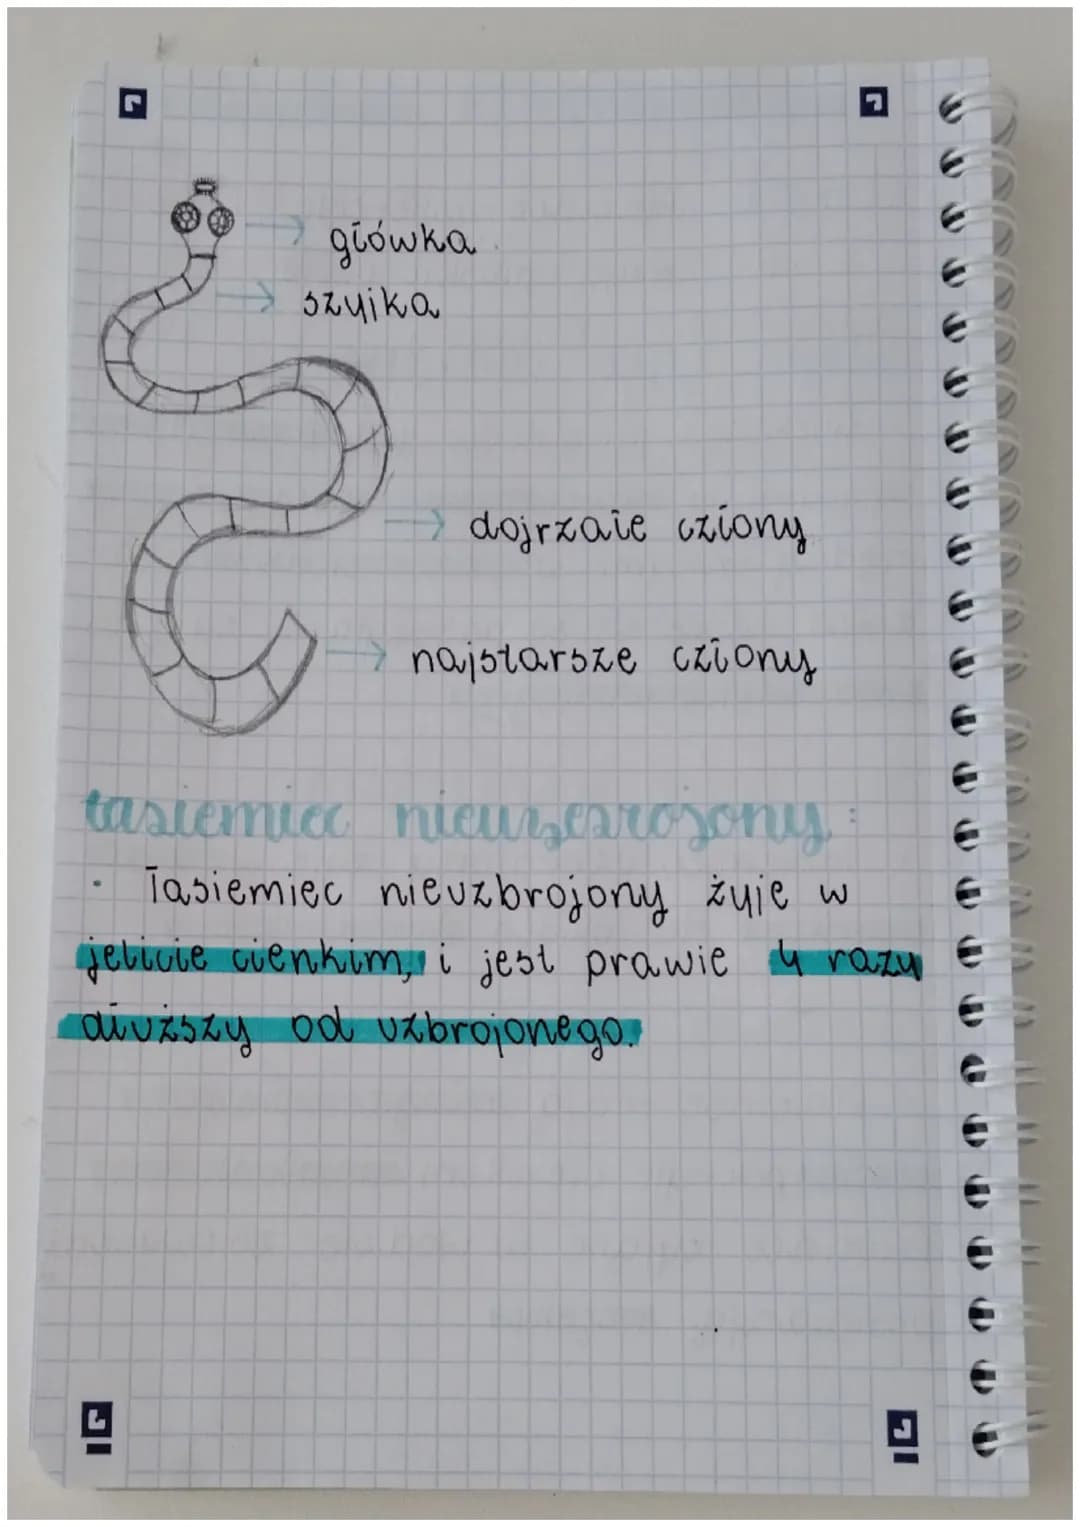 główka
szyjka
dojrzałe człony
najstarsze człony
tasiemiec nieuzbrojony:
· Tasiemiec nieuzbrojony żyje w
jelicie cienkim, i jest prawie 4 razy
dłuższy od uzbrojonego.